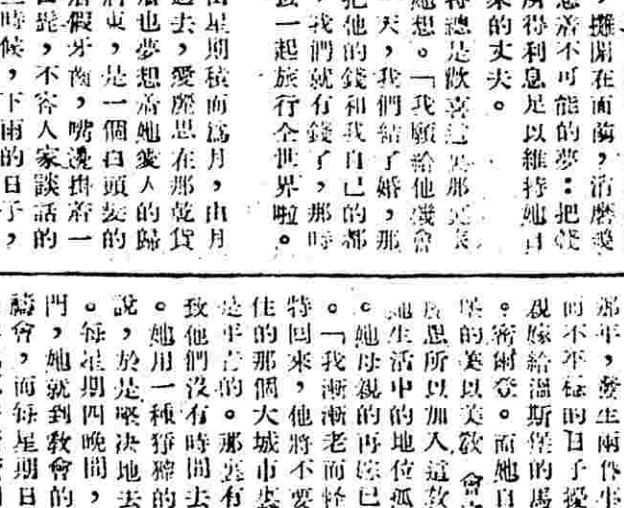 攤開在面前，消磨幾
思着不可能的夢：把錢
所得利息足以維持她自
來的丈夫。
特總是歡喜
她想。「我願給他機會
一天，我們結了婚，那
把他的錢和我自己的都
，我們就有錢了，那時
我一起旅行全世界啦。
由星期積而爲月，由月
過去，愛麗思在那乾貨
也夢想着她愛人的歸
東，是一個白頭髮的
着假牙齒，嘴邊掛着一
髭，不容人家談話的
時候，下雨的日子，
那年，發生兩件事
的不平樣的日子
親嫁給溫斯堡的馬
。密爾登。而她自
的美以美教會
所以加入這教
她生活中的地位孤
。她母親的再嫁已
。「我漸漸老而怪
特回來，他將不要
住的那個大城市裏
是年青的。那裏有
致他們沒有時間去
。她用一種獰獰的
說，於是堅決地去
。每星期四晚間，
門，她就到敎會的
禱會，而每星期日